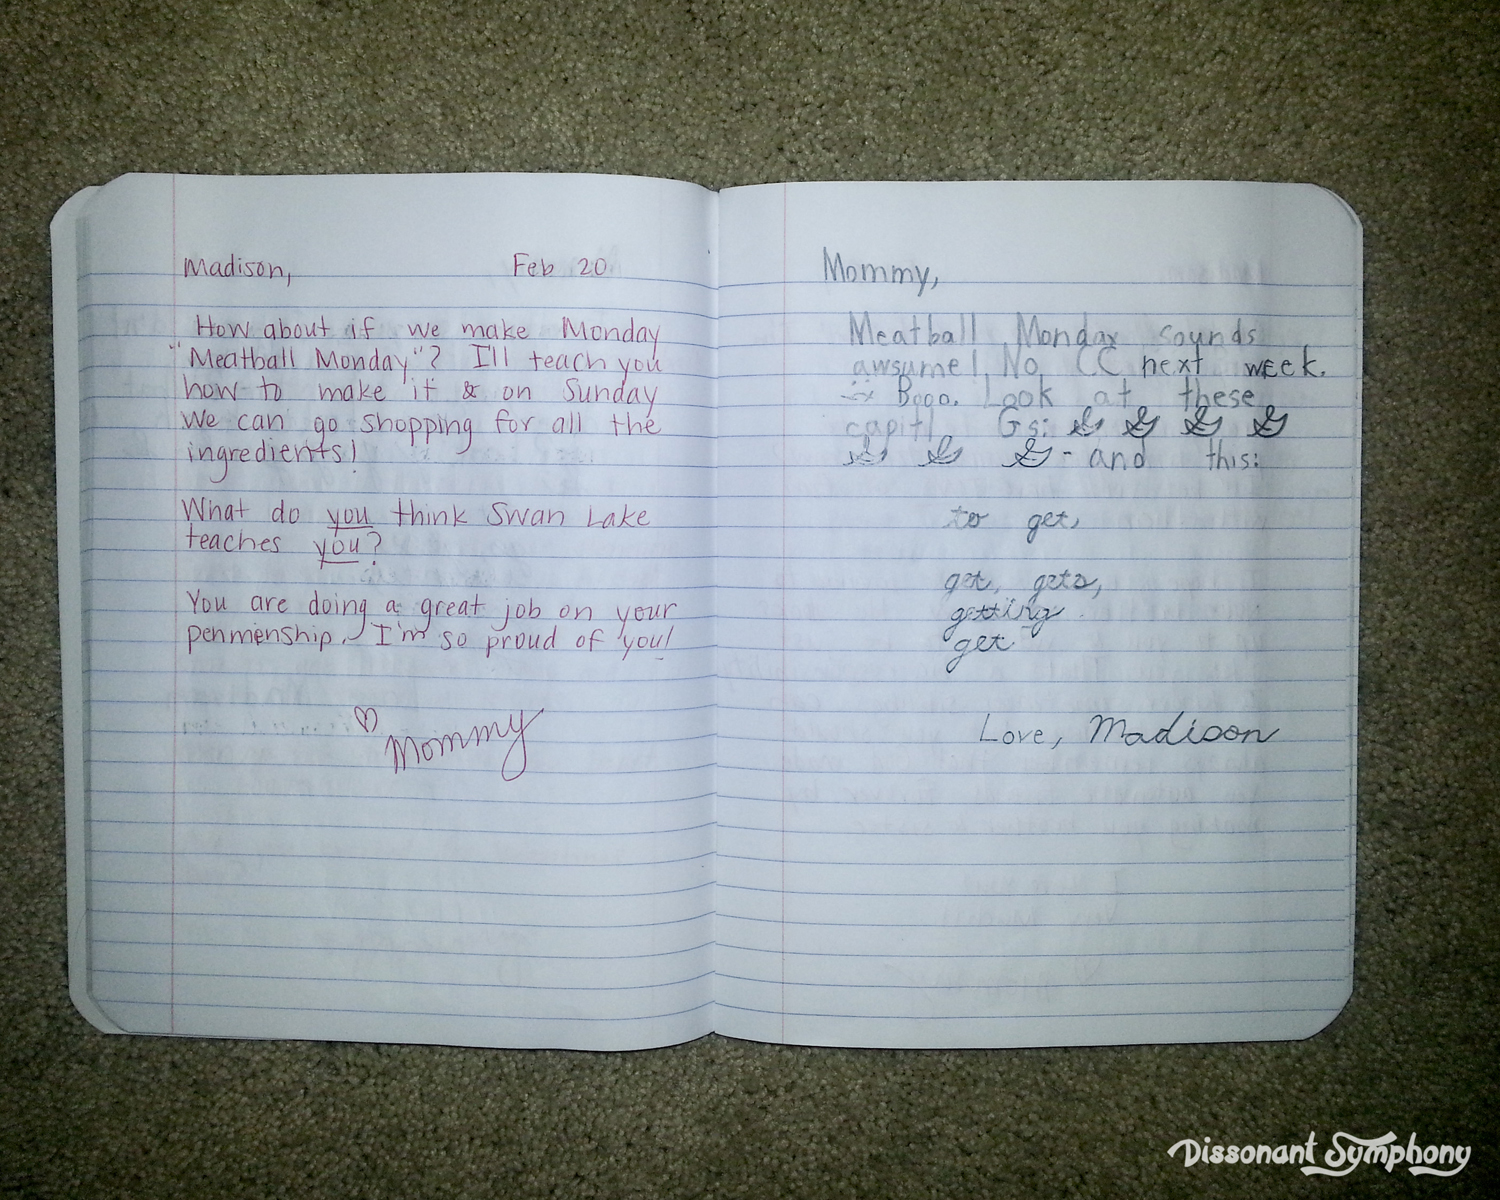 Madison, Feb 20
How about if we make Monday
"Meatball Monday"? I'll teach you
how to make it & on Sunday
we can go shopping for all the
ingredients!
What do you think Swan Lake
teaches you?
You are doing a great job on your
penmenship. I'm so proud of you!
♡ Mommy
Mommy,
Meatball Monday sounds
awsume! No CC next week.
:-( Booo. Look at these
capitl Gs: G G G G
G G G - and this:
to get,
get, gets,
getting
get
Love, Madison
Dissonant Symphony